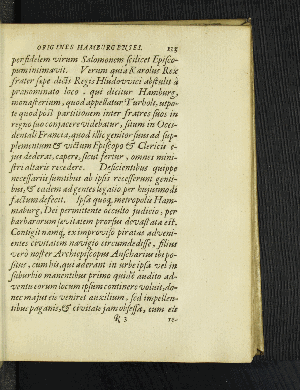 ORIGINES HAMBURGENSES. 125
per fidelem virum Salomonem scilicet Episco-
pum intimavit. Verum quia Karolus Rex
frater sæpe dicti Regis Hludovvici abstulit à
prænominato loco. qui dicitur Hamburg,
monasterium, quod appellatur Turholt, utpo-
te quod post partitionem inter fratres suos in
regno suo conjacere videbatur, situm in Occi-
dentali Francia, quod illic genitor suus ad sup-
plementum & victum Episcopo & Clericis e-
jus dederat, capere, sicut fertur, omnes mini-
stri altaris recedere. Deficientibus quippe
necessariis sumtibus ab ipsis recesserunt genti-
bus, & eadem ad gentes legatio per hujusmodi
factum defecit. Ipsa quoq; metropolis Ham-
maburg, Dei permittente occulto judicio, per
barbarorum sævitatem prorsus devastata est.
Contigit namq; ex improviso piratas advenі-
entes civitatem navigio circumdedisse, filius
verò noster Archiepiscopus Anscharius ibi po-
situs, cum his, qui aderant in urbe ipsa vel in
suburbio manentibus primo quidē audito ad-
ventu eorum locum ipsum continere voluit, do-
nec majus eis veniret auxilium, sed impellen-
tibus paganis, & civitate jam obsessa, cum eis
R 3 re-